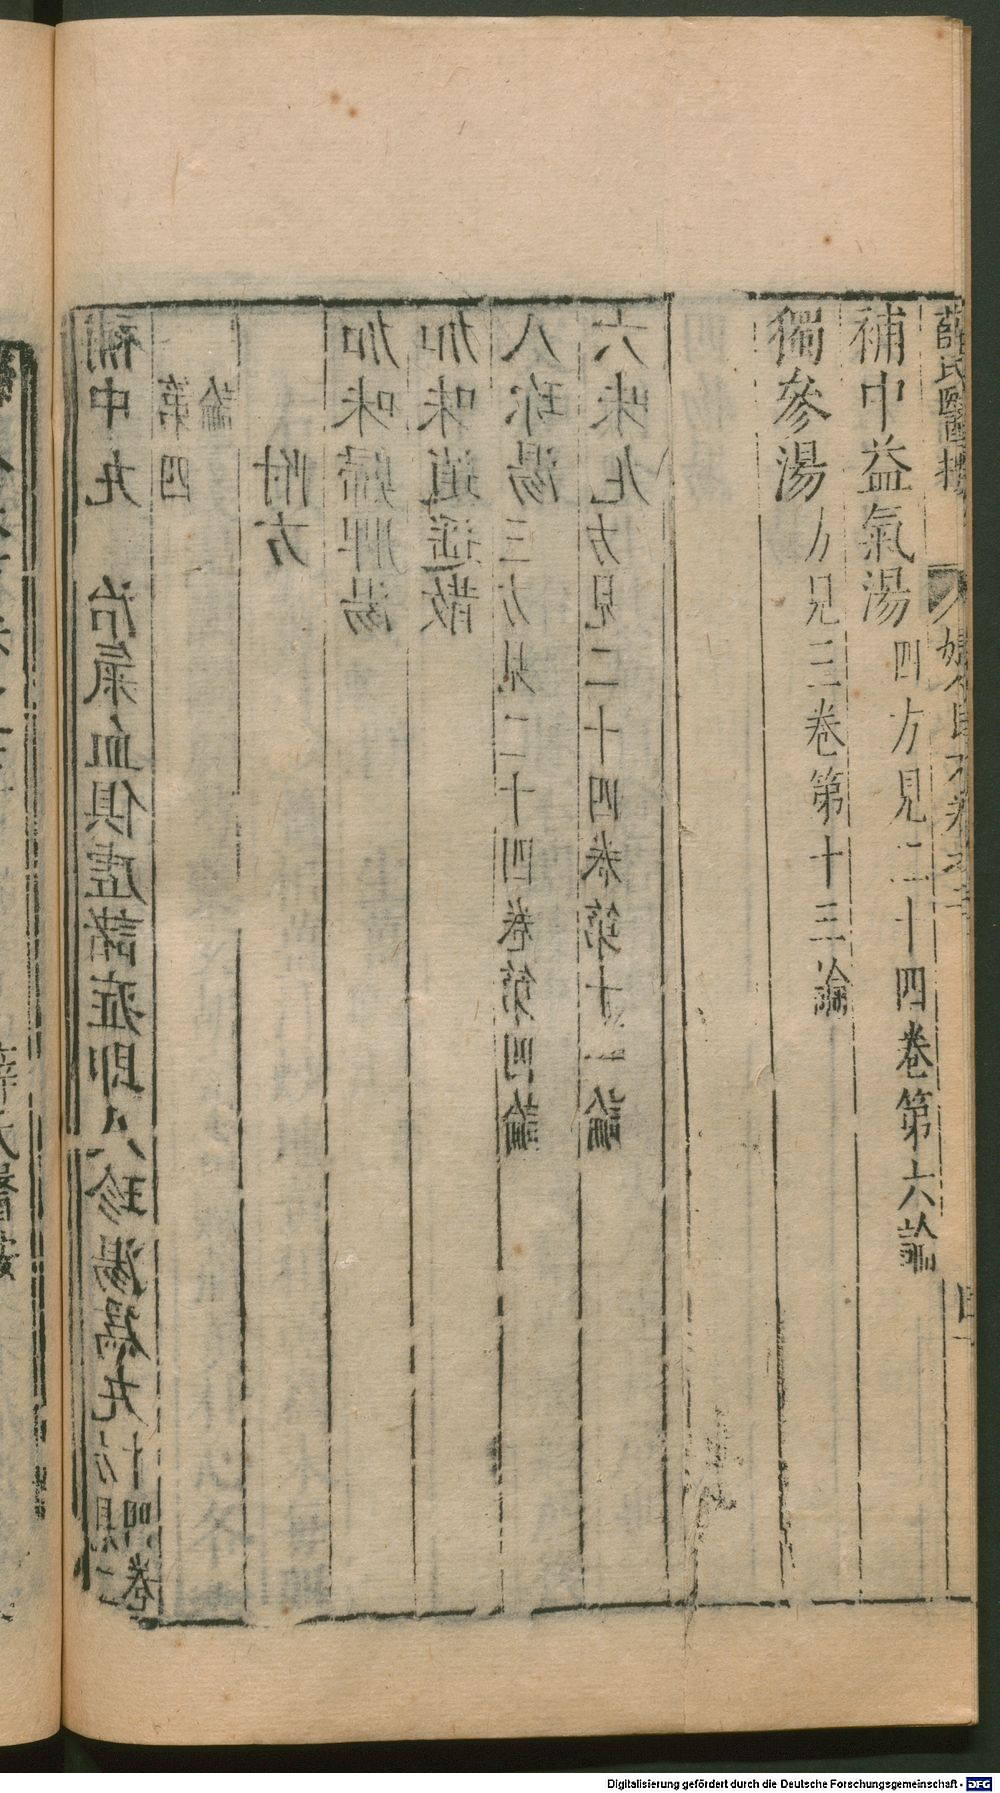 薛氏醫按 婦人良方卷之三 四一
補中益氣湯四方見二十四卷第六論
獨參湯方見三卷第十三論
補中丸 治氣血俱虛諸症即八珍湯為丸方見二十四卷
第四論
附方
加味歸脾湯
加味逍遙散
八珍湯三方見二十四卷第四論
六味丸方見二十四卷第十一論
Digitalisierung gefördert durch die Deutsche Forschungsgemeinschaft - DFG